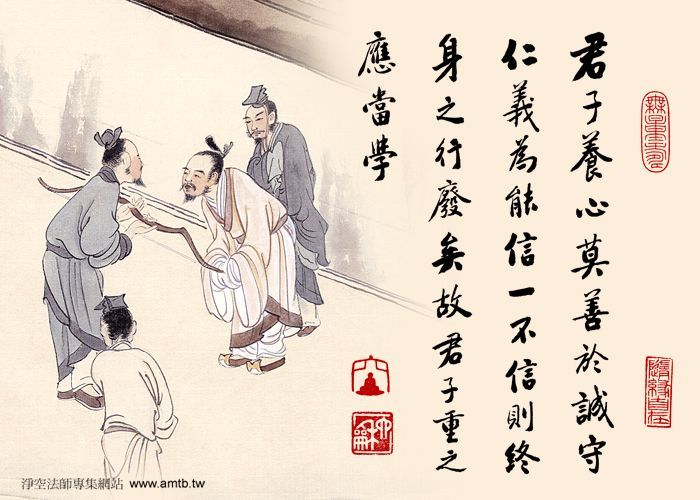 君子養心莫善於誠守
仁義為能信一不信則終
身之行廢矣故君子重之
應當學
隨緣自在
淨空法師專集網站 www.amtb.tw